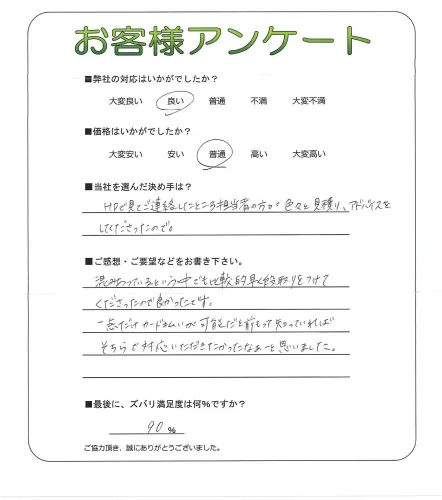 お客様アンケート
■弊社の対応はいかがでしたか?
大変良い 良い 普通 不満 大変不満
■価格はいかがでしたか?
大変安い 安い 普通 高い 大変高い
■当社を選んだ決め手は?
HPで見てご連絡したところ担当者の方が色々と見積り、アドバイスを
してくださったので。
■ご感想・ご要望などをお書き下さい。
混みあっているという中でも比較的早く段取りをつけて
くださったので良かったです。
一点だけカード払いが可能だと前もって知っていれば
そちらで対応いただきたかったなぁーと思いました。
■最後に、ズバリ満足度は何%ですか?
90 %
ご協力頂き、誠にありがとうございました。